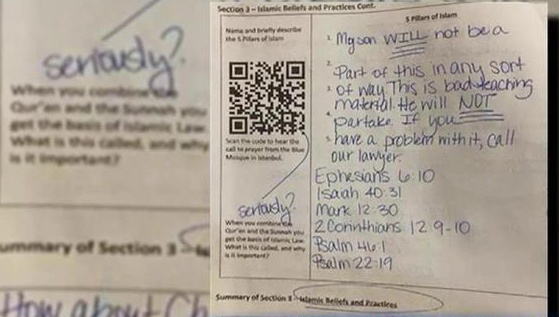 seriously?
When you combine the
Qur'an and the Sunnah you
get the basis of Islamic Law.
What is this called, and why
is it important?
ummary of Section 3
How about Ch
Section 3 – Islamic Beliefs and Practices Cont.
Name and briefly describe
the 5 Pillars of Islam
Scan the code to hear the
call to prayer from the Blue
Mosque in Istanbul.
seriously?
When you combine the
Qur'an and the Sunnah you
get the basis of Islamic Law.
What is this called, and why
is it important?
5 Pillars of Islam
1. My son WILL not be a
2. Part of this in any sort
3. of way. This is bad teaching
material. He will NOT
4. partake. If you
5. have a problem with it, call
our lawyer.
Ephesians 6:10
Isaiah 40:31
Mark 12:30
2 Corinthians 12:9-10
Psalm 46:1
Psalm 22:19
Summary of Section 3 – Islamic Beliefs and Practices